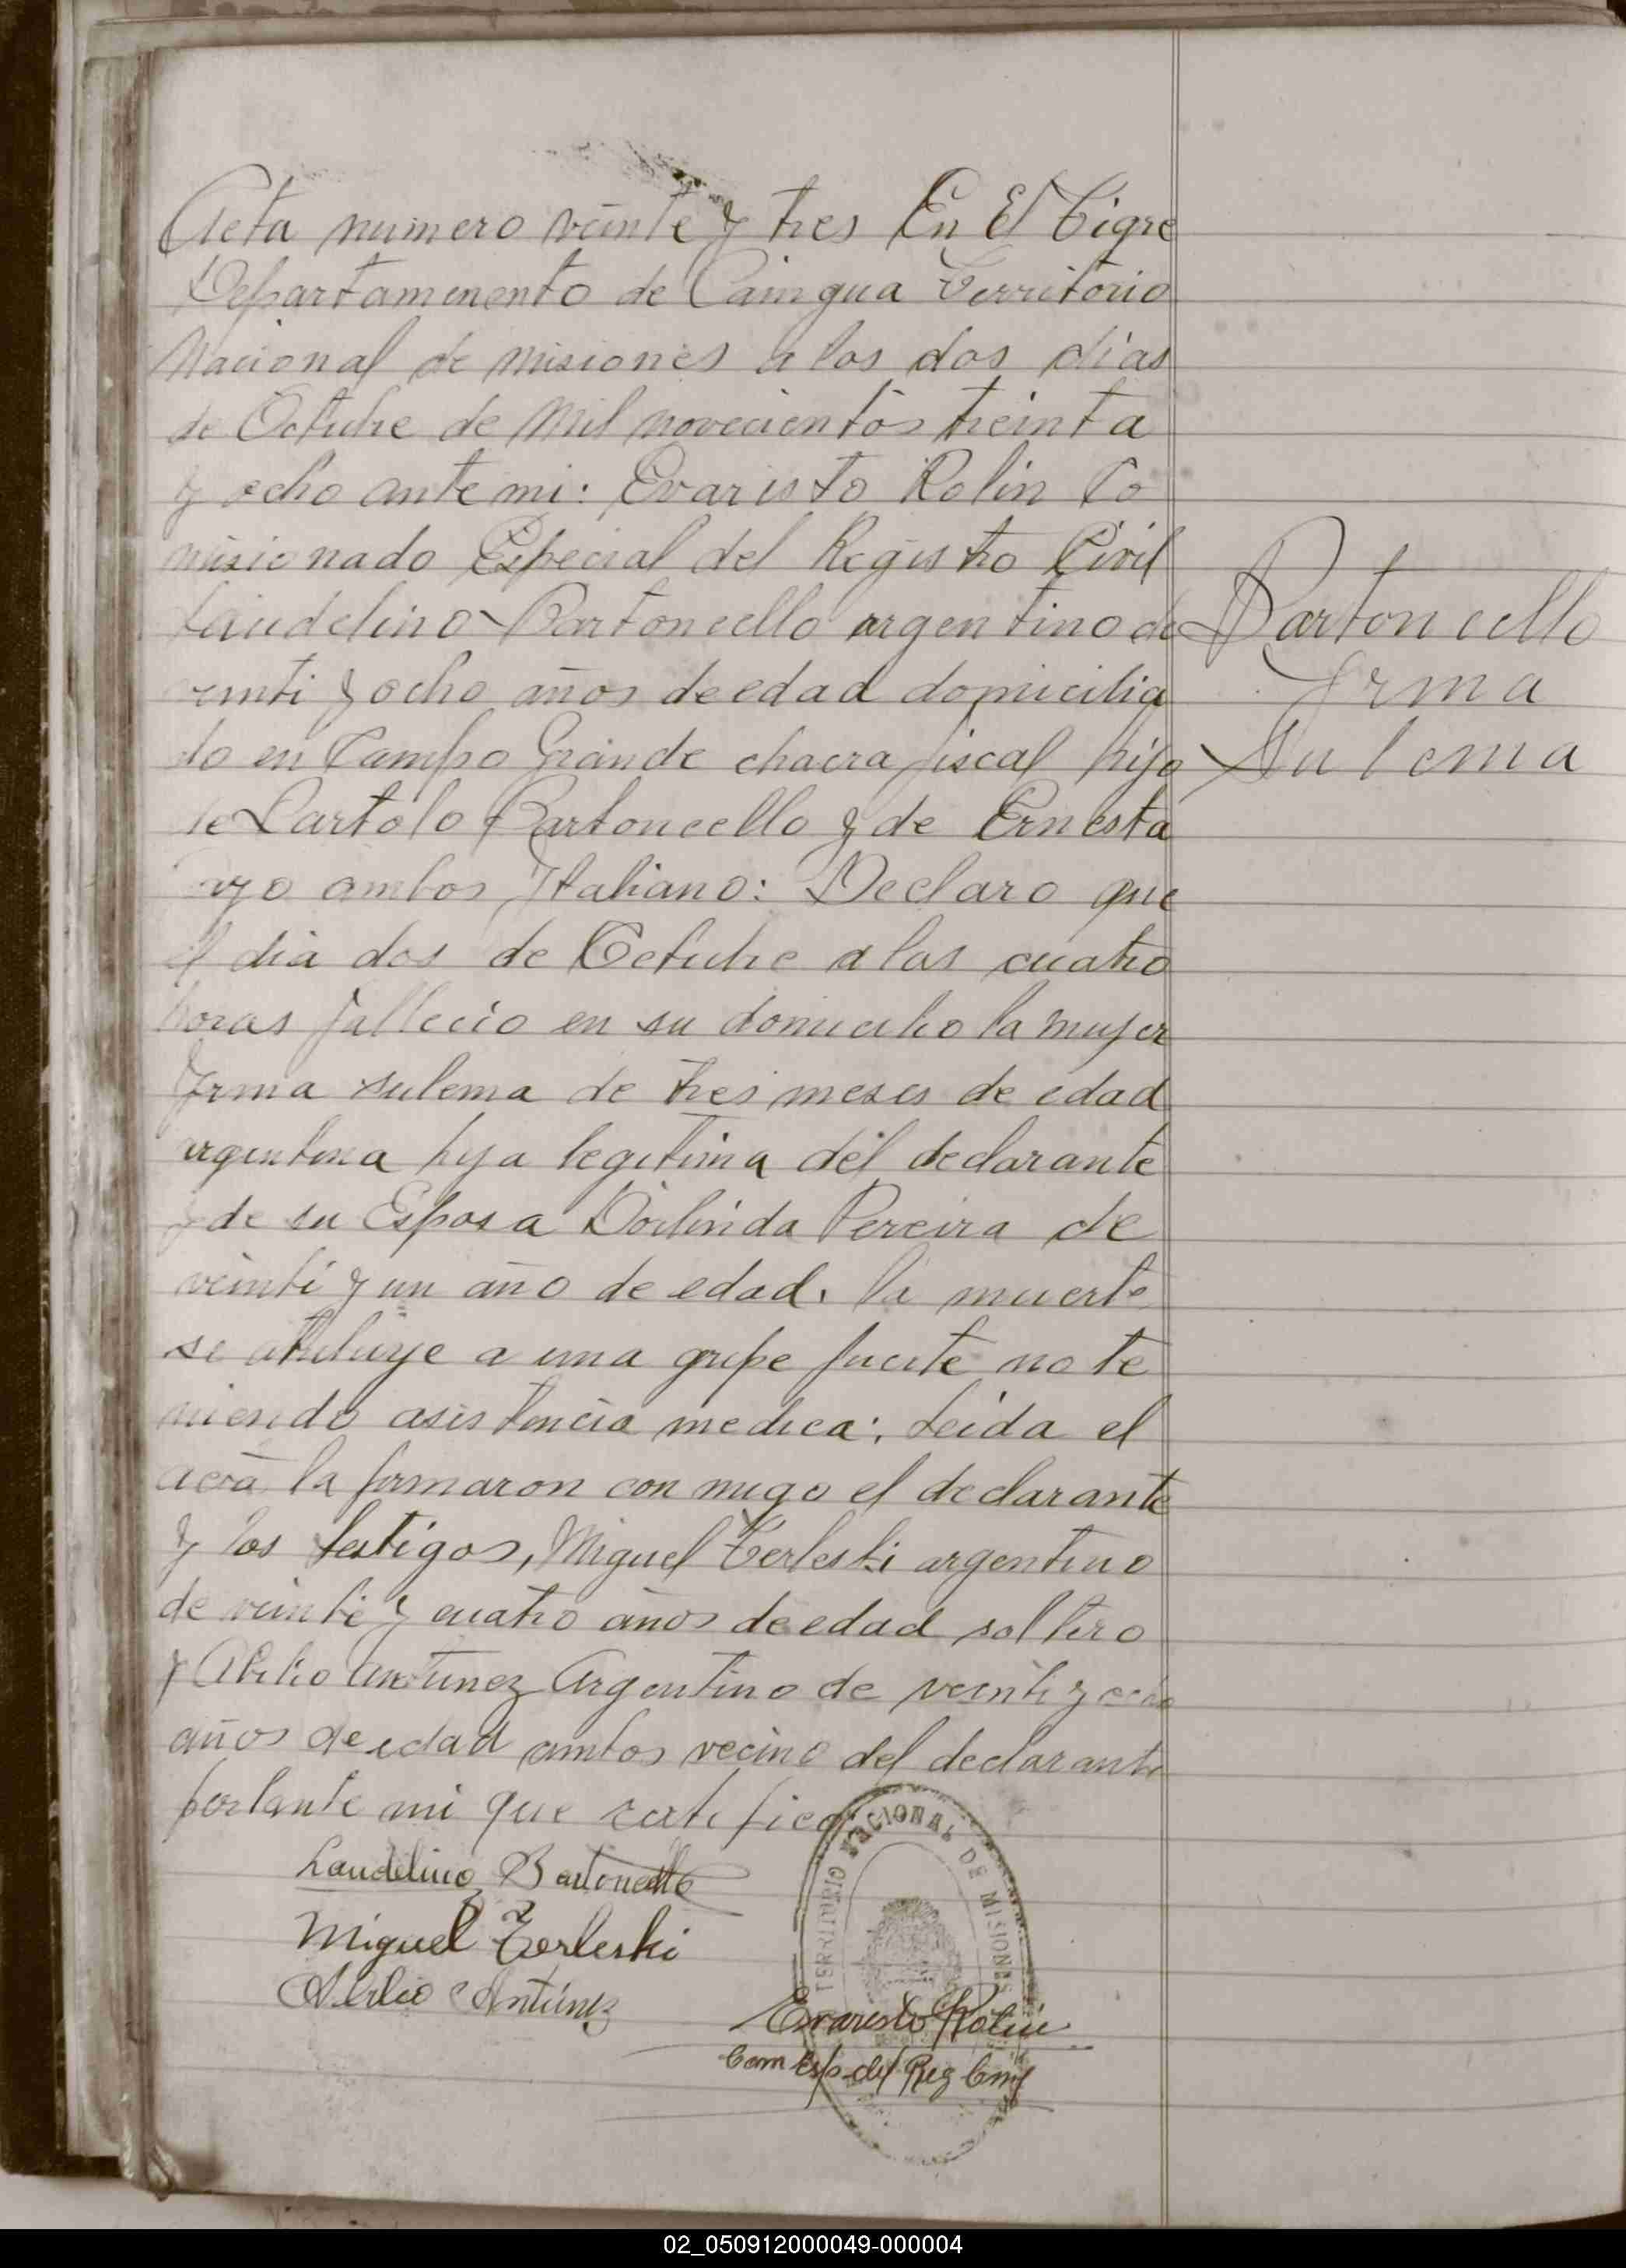 Acta numero veinte y tres En El Tigre
Departamenento de Caingua Territorio
Nacional de Misiones a los dos dias
de Octubre de Mil novecientos treinta
y ocho ante mi: Evaristo Rolin Co
misionado Especial del Registro Civil
Laudelino Bartoncello argentino de
veinti y ocho años de edad domicilia
do en Campo Grande chacra fiscal hijo
de Bartolo Bartoncello y de Ernesta
ambos Italiano: Declaro que
el dia dos de Octubre a las cuatro
horas fallecio en su domicilio la mujer
Irma sulema de tres meses de edad
argentina hija legitima del declarante
y de su Esposa Dorlinda Pereira de
veinti y un año de edad. la muerte
se atribuye a una gripe fuerte no te
niendo asistencia medica: Leida el
la firmaron con migo el declarante
y los testigos, Miguel Terleski argentino
de veinti y cuatro años de edad soltero
y Abilio Antunez Argentino de veinti y ocho
años de edad ambos vecino del declarante
por lante mi que certifico
Bartoncello
Irma
Sulema
Laudelino Bartoncello
Miguel Terleski
Abilio Antúnez
TERRITORIO NACIONAL DE MISIONES
Evaristo Rolin
Com Esp. del Reg Civil
02_050912000049-000004